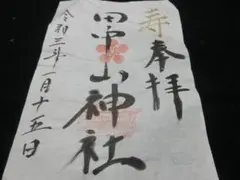 寿
奉拝
田中山神社
令和三年一月十五日